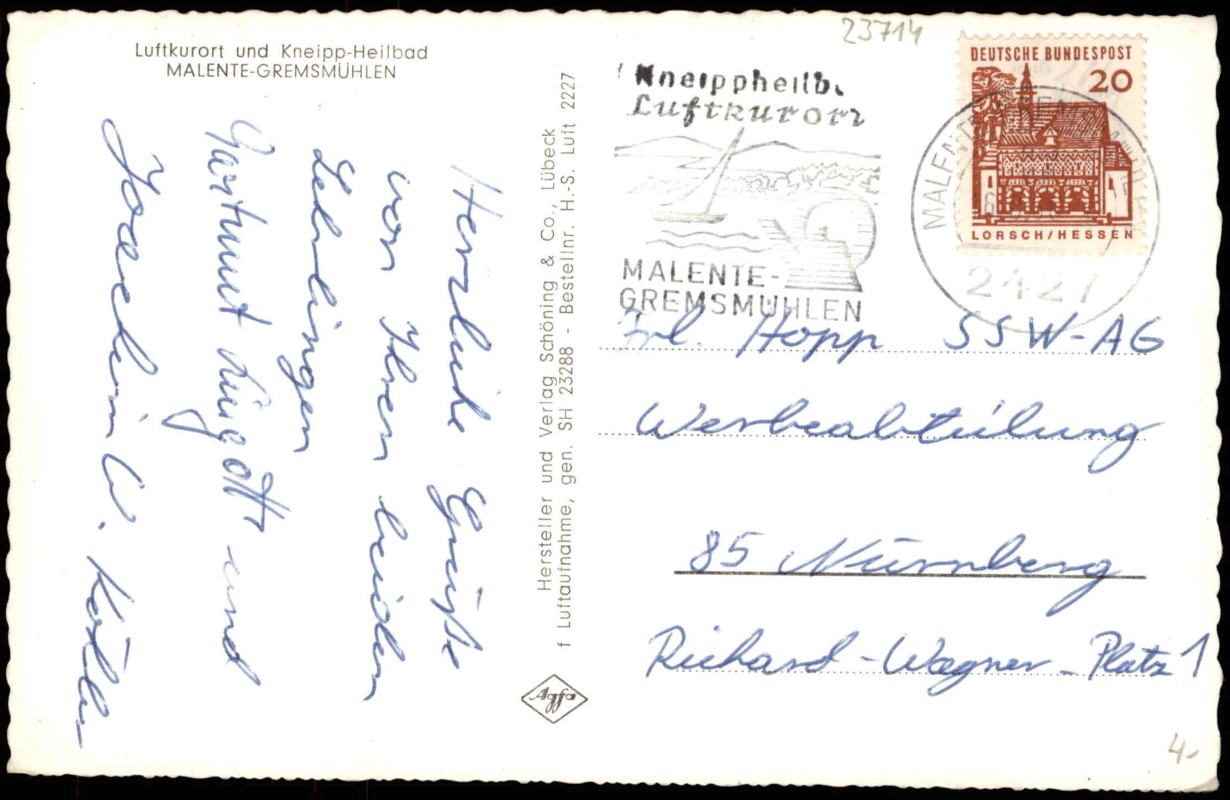 Luftkurort und Kneipp-Heilbad
MALENTE-GREMSMÜHLEN
Herzliche Grüße
von Ihren beiden
Lehrlingen
Hartmut Lugott und
Joachim W. Köhler
Hersteller und Verlag Schöning & Co., Lübeck
f Luftaufnahme, gen. SH 23288 - Bestellnr. H.-S. Luft 2227
agfa
23714
Kneippheilb.
Luftkurort
MALENTE-
GREMSMÜHLEN
DEUTSCHE BUNDESPOST
20
LORSCH/HESSEN
2427
Frl. Hopp SSW-AG
Werbeabteilung
85 Nürnberg
Richard-Wagner-Platz 1
4,-